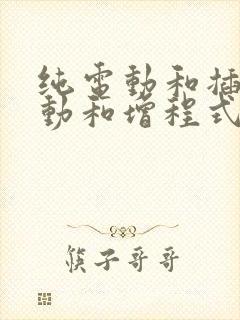 纯電動和插
動和增程式
筷子哥哥